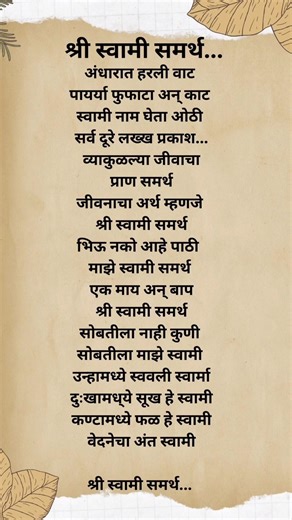 श्री स्वामी समर्थ...
अंधारात हरली वाट
पायर्या फुफाटा अन् काट
स्वामी नाम घेता ओठी
सर्व दूरे लख्ख प्रकाश...
व्याकुळल्या जीवाचा
प्राण समर्थ
जीवनाचा अर्थ म्हणजे
श्री स्वामी समर्थ
भिऊ नको आहे पाठी
माझे स्वामी समर्थ
एक माय अन् बाप
श्री स्वामी समर्थ
सोबतीला नाही कुणी
सोबतीला माझे स्वामी
उन्हामध्ये स्ववली स्वार्मा
दुःखामध्ये सूख हे स्वामी
कण्टामध्ये फळ हे स्वामी
वेदनेचा अंत स्वामी
श्री स्वामी समर्थ...